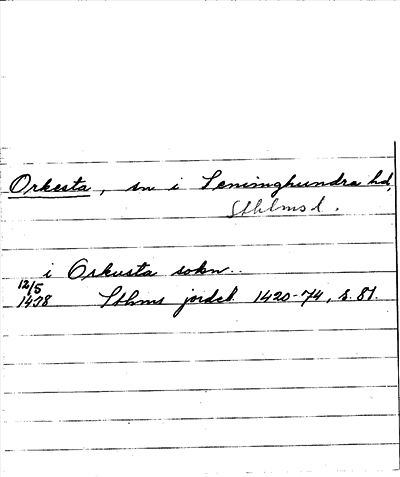 Orkesta, sn i Seminghundra hd,
Sthlms l.
i Orkusta sokn..
12/5
1438 Sthms jordeb. 1420-74, s. 81.